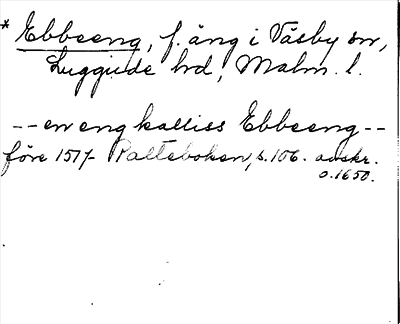 * Ebbeeng, f. äng i Väsby sn,
Luggude hd, Malm. l.
-- en eng kalliss Ebbeeng --
före 1517 Palteboken, s. 106. avskr.
o. 1650.